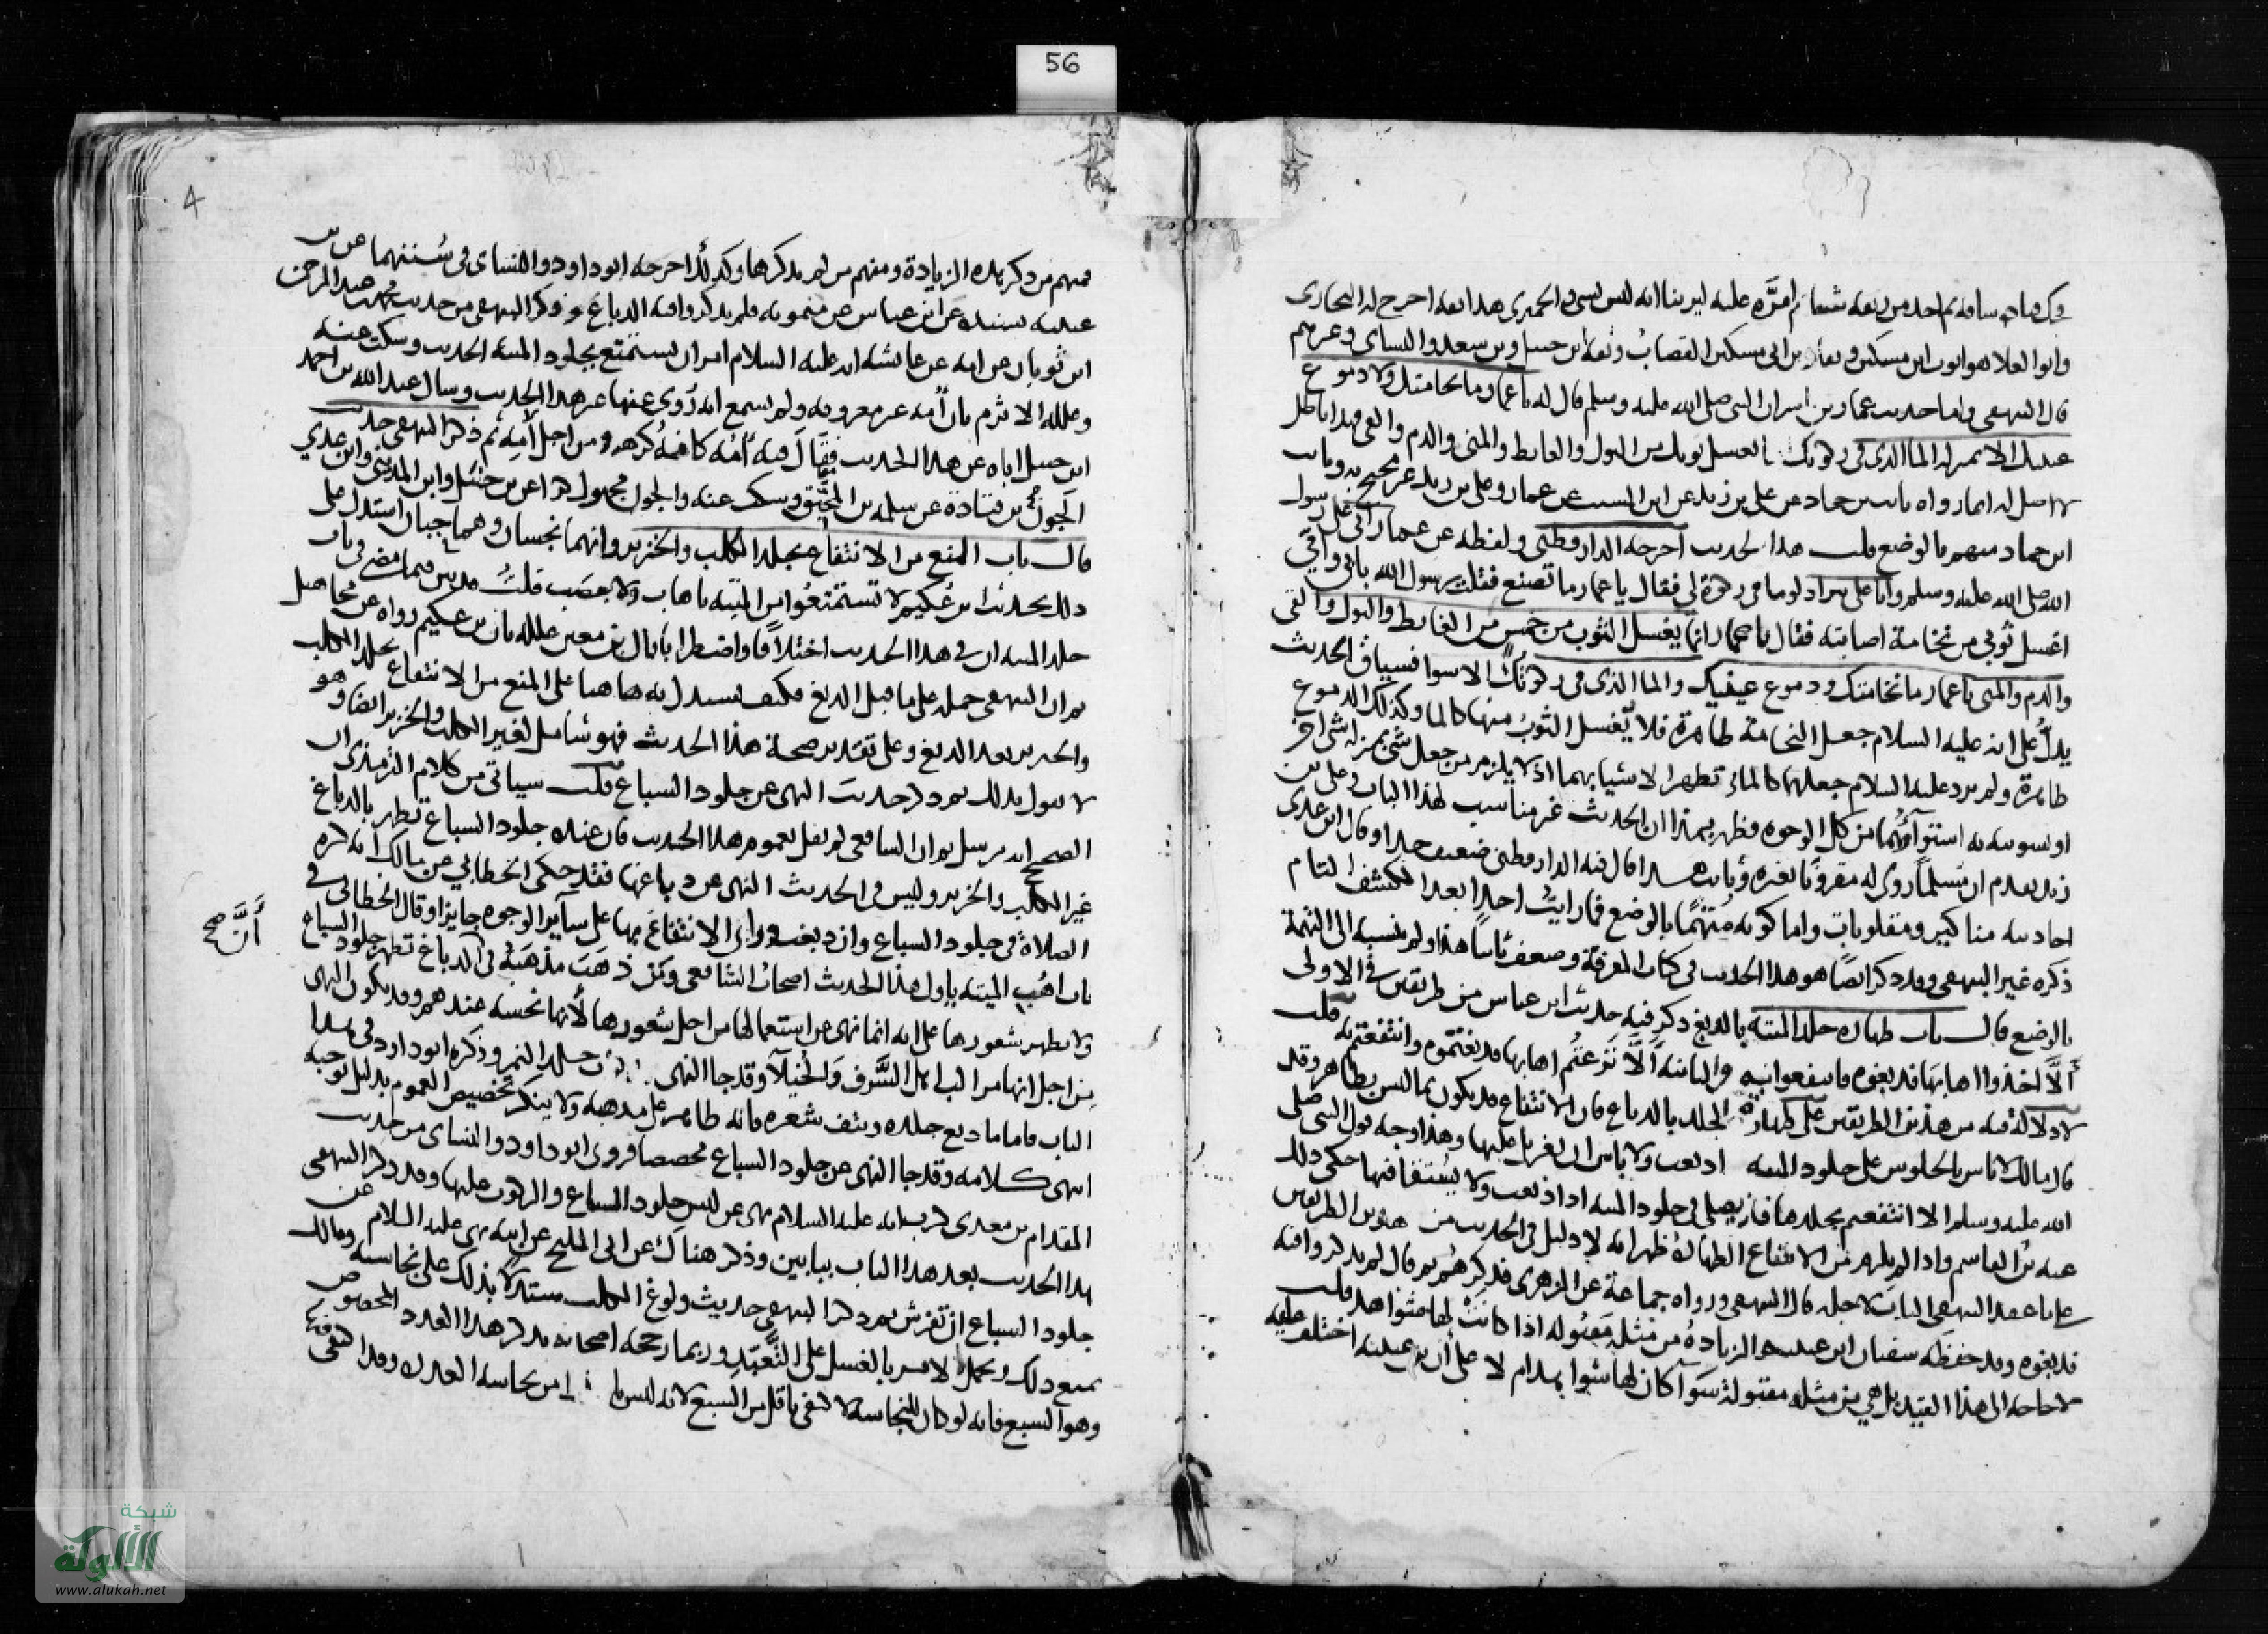 56
قال البيهقي واما حديث عمار بن ياسر ان النبي صلى الله عليه وسلم قال له يا عمار ما نخامتك ولا دموع
عينيك الا بمنزلة الماء الذي في ركوتك انما تغسل ثوبك من البول والغائط والمني والدم والقي فهذا باطل
لا اصل له انما رواه ثابت بن حماد عن علي بن زيد عن ابن المسيب عن عمار وعلي بن زيد غير محتج به وثابت
ابن حماد متهم بالوضع قلت هذا الحديث اخرجه الدارقطني ولفظه عن عمار اتى علي رسول
الله صلى الله عليه وسلم وانا على بير ادلو ما في ركوة لي فقال يا عمار ما تصنع فقلت يرسول الله بابي وامي
اغسل ثوبي من نخامة اصابته فقال يا عمار انما يغسل الثوب من خمس من الغايط والبول والقي
والدم والمني يا عمار ما نخامتك ودموع عينيك والما الذي في ركوتك الا سوا فسياق الحديث
يدل على انه عليه السلام جعل النخامة طاهرة فلا يغسل الثوب منها كالما وكذلك الدموع
طاهرة ولم يرد عليه السلام جعلها كالماء تطهر الاشيا بهما اذ لا يلزم من جعل شي بمنزلة شي اخر
او تسويته به استواؤهما من كل الوجوه فظهر بهذا ان الحديث غير مناسب لهذا الباب وعلي بن
زيد تقدم ان مسلما روى له مقرونا بغيره وثابت هذا قال فيه الدارقطني ضعيف جدا وقال ابن عدي
احاديثه مناكير ومقلوبات واما كونه متهما بالوضع فما رايت احدا بعد الكشف التام
ذكره غير البيهقي وقد ذكر ايضا هو هذا الحديث في كتاب المعرفة وضعف ثابتا هذا ولم ينسبه الى التهمة
بالوضع قال باب طهارة جلد الميتة بالدبغ ذكر فيه حديث ابن عباس من طريقين في الاولى
ألا اخذوا اهابها فدبغوه فانتفعوا به وفي الثانية ألا نزعتم اهابها فدبغتموه وانتفعتم به قلت
لا دلالة فيه من هذين الطريقين على طهارة الجلد بالدباغ فان الانتفاع قد يكون بما ليس بطاهر وقد
قال مالك لا باس بالجلوس على جلود الميتة اذا دبغت ولا باس ان يغربل عليها وهذا وجه قول النبي صلى
الله عليه وسلم الا انتفعتم بجلدها فان يصلى في جلود الميتة اذا دبغت ولا يستقا فيها حكى ذلك
عنه بن القاسم واذا لم يلزم من الانتفاع الطهارة ظهر انه لا دليل في الحديث من هذين الطريقين
على ما عقد البيهقي الباب لاجله قال البيهقي ورواه جماعة عن الزهري فذكرهم ثم قال لم يذكروا فيه
فدبغوه وقد حفظه سفيان ابن عيينة والزيادة من مثله مقبولة اذا كانت لها شواهد قلت
لا حاجة الى هذا القيد بل هي من مثله مقبولة سوآ كان لها شواهد ام لا على ان بن عيينة اختلف عليه
4
فمنهم من ذكر هذه الزيادة ومنهم من لم يذكرها وكذلك اخرجه ابو داود والنساي في سننهما عن بن
عيينة بسنده عن ابن عباس عن ميمونة فلم يذكروا فيه الدباغ وذكر البيهقي من حديث محمد بن عبد الرحمن
ابن ثوبان عن امه عن عايشة انه عليه السلام امر ان يستمتع بجلود الميتة الحديث وسكت عنه
وعلله الاثرم بان امه غير معروفة ولم يسمع انه روى عنها غير هذا الحديث وسال عبد الله بن احمد
ابن حنبل اباه عن هذا الحديث فقال فيه امه كانه كرهه من اجل امه ثم ذكر البيهقي حديث
الجون بن قتادة عن سلمة بن المحبق وسكت عنه والجون مجهول كذا عن بن حنبل وابن المديني وابن عدي
قال باب المنع من الانتفاع بجلد الكلب والخنزير وانهما نجسان وهما حيان استدل على
ذلك بحديث ابن عكيم لا تستمتعوا من الميتة باهاب ولا بعصب قلت قد بين فيما مضى في باب
جلد الميتة ان في هذا الحديث اختلافا واضطرابا وان بن معين علله بان بن عكيم رواه عن مجاهيل
ثم ان البيهقي حمله على ما قبل الدبغ فكيف يستدل به هاهنا على المنع من الانتفاع بجلد الكلب
والخنزير بعد الدبغ وعلى تقدير صحة هذا الحديث فهو شامل لغير الكلب والخنزير ايضا وهو
لا يقول بذلك ثم ذكر حديث النهي عن جلود السباع قلت سياتي من كلام الترمذي ان
الصحيح انه مرسل ثم ان الشافعي لم يقل بعموم هذا الحديث فان عنده جلود السباع تطهر بالدباغ
غير الكلب والخنزير وليس في الحديث النهي عن دباغها فقد حكى الخطابي عن مالك انه كره
الصلاة في جلود السباع وان دبغت وراى الانتفاع بها على سآير الوجوه جايزا وقال الخطابي في
أن صح
باب اهب الميتة ياول هذا الحديث اصحاب الشافعي ومن ذهب مذهبه في ان الدباغ تطهر جلود السباع
ولا يطهر شعورها على انه انما نهى عن استعمالها من اجل شعورها لانها نجسة عندهم وقد يكون النهي
من اجل انها مراكب اهل السرف والخيلآ وقد جا النهي عن جلد النمر وذكره ابو داود في هذا
الباب فاما ما دبغ جلده ونتف شعره فانه طاهر على مذهبه ولا ينكر تخصيص العموم بدليل يوجبه
انتهى كلامه وقد جا النهي عن جلود السباع مخصصا فروى ابو داود والنساي من حديث
المقدام بن معدي كرب انه عليه السلام نهى عن لبس جلود السباع والركوب عليها وقد ذكر البيهقي
هذا الحديث بعد هذا الباب ببابين وذكر هناك عن ابي المليح عن ابيه نهى عليه السلام عن
جلود السباع ان تفترش ثم ذكر البيهقي حديث ولوغ الكلب مستدلا بذلك على نجاسته ومالك
يمنع ذلك ويحمل الامر بالغسل على التعبد وربما رجحه اصحابه بذكر هذا العدد المخصوص
وهو السبع فانه لو كان للنجاسة لاكتفى باقل من السبع لانه ليس باغلظ من نجاسة العذرة وقد اكتفى
شبكة
الألوكة
www.alukah.net